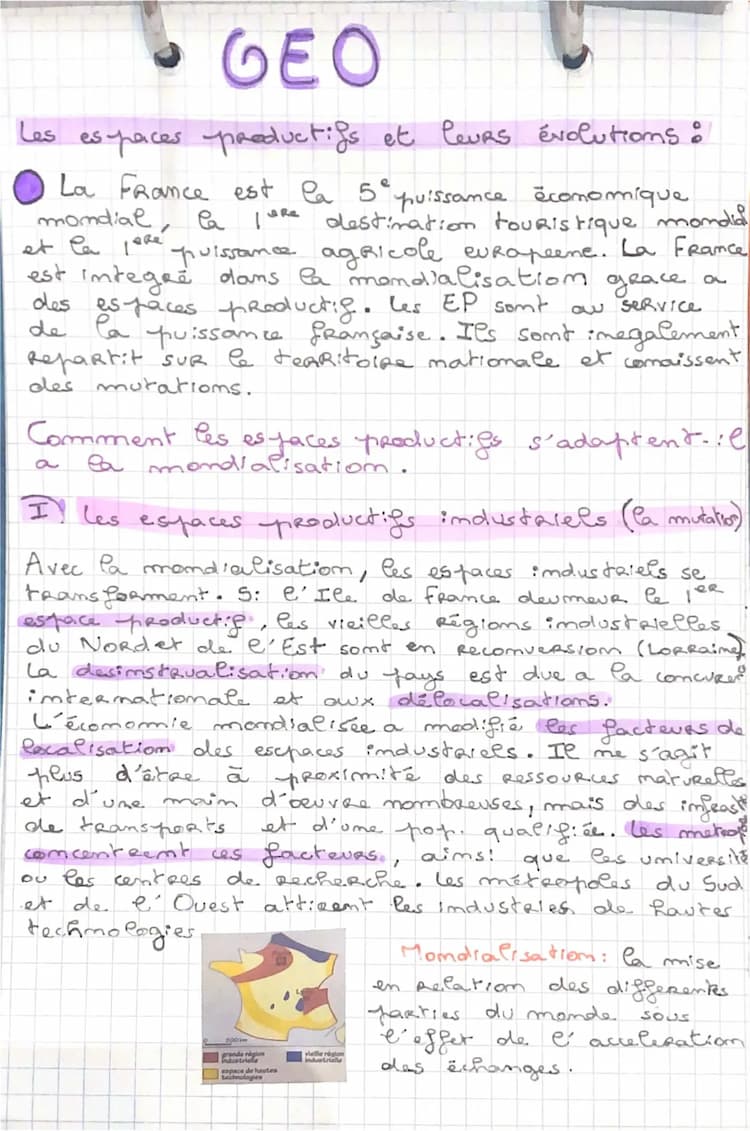 GEO
Les espaces productifs et leurs évolutions :
La France est la 5e puissance économique
mondial, la 1ere destination touristique mondial
et la 1ere puissance agricole europeene. La France
est integré dans la mondialisation grace a
des espaces productif. Les EP sont au service
de la puissance française. Ils sont inegalement
repartit sur le territoire nationale et connaissent
des mutations.
Comment les espaces productifs s'adaptent-il
a la mondialisation.
I) Les espaces productifs industriels (la mutation)
Avec la mondialisation, les espaces industriels se
transforment. Si l'Ile de France deumeur le 1er
espace productif, les vieilles régions industrielles
du Nord et de l'Est sont en reconversion (Lorraine).
La desinstrualisation du pays est due a la concure
internationale et aux délocalisations.
L'économie mondialisée a modifié les facteurs de
localisation des escpaces industriels. Il ne s'agit
plus d'être à proximité des ressources naturelles
et d'une main d'œuvre nombreuses, mais des infrast
de transports et d'une pop. qualifiée. Les metrop
concentrent ces facteurs, ainsi que les université
ou les centres de recherche. Les métropoles du Sud
et de l'Ouest attirent les industries de hautes
technologies
grande région industrielle
vieille région industrielle
espace de hautes technologies
Mondialisation : la mise
en relation des differentes
parties du monde sous
l'effet de l'acceleration
des échanges.